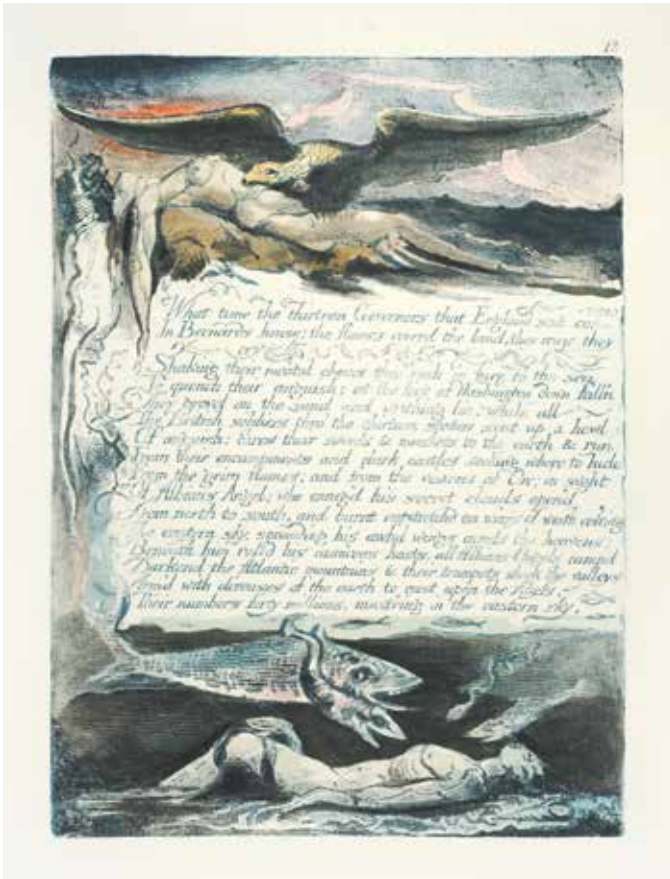 What time the thirteen Governors that England sent
In Bernards house; the flames coverd the land, they rouze they
Shaking their mental chains they rush in fury to the sea
To quench their anguish; at the feet of Washington down falln
They grovel on the sand and writhing lie, while all
The British soldiers thro the thirteen states sent up a howl
Of anguish: threw their swords & muskets to the earth & ran
From their encampments and dark castles seeking where to hide
From the grim flames; and from the visions of Orc; in sight
Of Albions Angel; who enragd his secret clouds opend
From north to south, and burnt outstretchd on wings of wrath
The eastern sky, spreading his awful wings across the heavens;
Beneath him rolld his numrous hosts, all Albions Angels campd
Darkend the Atlantic mountains & their trumpets shook the valleys
Armd with diseases of the earth to cast upon the Abyss,
Their numbers forty millions, mustring in the eastern sky.